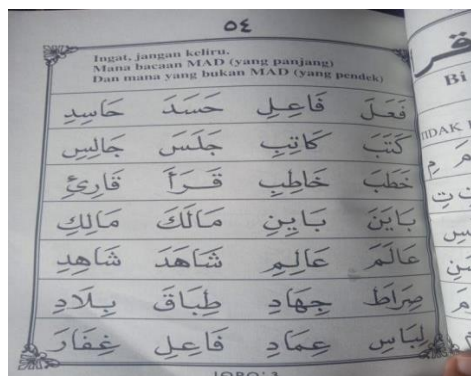 ٥٤
Ingat, jangan keliru.
Mana bacaan MAD (yang panjang)
Dan mana yang bukan MAD (yang pendek)
فَعَلَ فَاعِلِ حَسَدَ حَاسِدِ
كَتَبَ كَاتِبِ جَلَسَ جَالِسِ
خَطَبَ خَاطِبِ قَرَأَ قَارِئِ
بَايَنَ بَايِنِ مَالَكَ مَالِكِ
عَالَمَ عَالِمِ شَاهَدَ شَاهِدِ
صِرَاطَ جِهَادِ طِبَاقَ بِلَادِ
لِبَاسِ عِمَادِ فَاعِلِ غِفَارَ
Bi